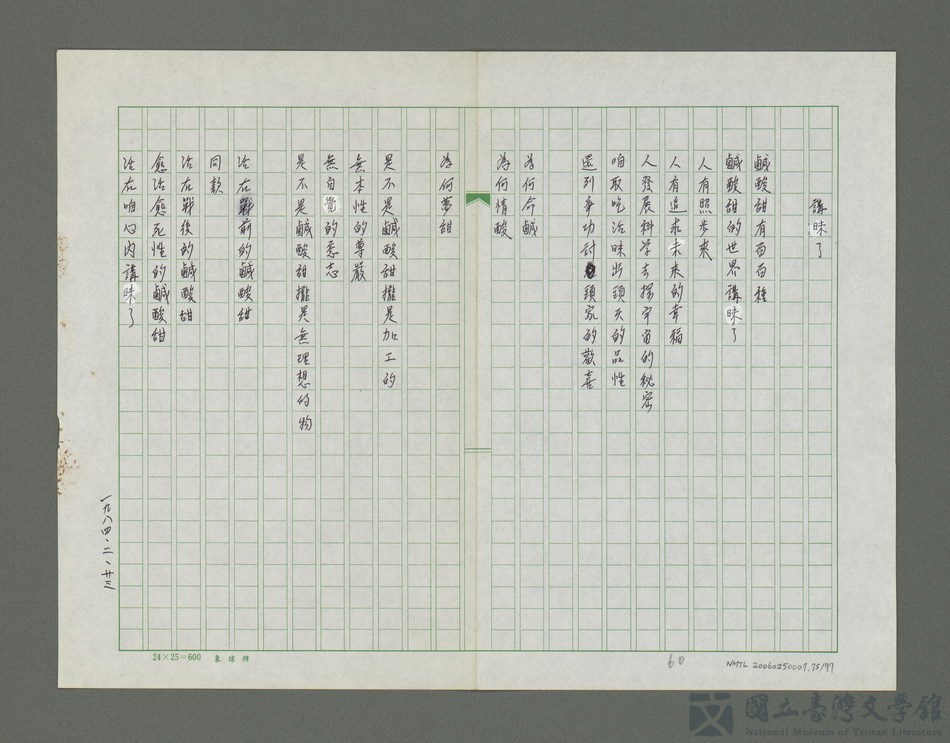 講昧了
鹹酸甜有百百種
鹹酸甜的世界講昧了
人有照步來
人有追求未來的幸福
人發展科学去探宇宙的秘密
咱取吃活昧出頭天的品性
還列爭功討頭家的歡喜
為何今鹹
為何情酸
為何夢甜
是不是鹹酸甜攏是加工的
無本性的尊嚴
無自覺的意志
是不是鹹酸甜攏是無理想的物
活在戰前的鹹酸甜
同款
活在戰後的鹹酸甜
愈活愈死性的鹹酸甜
活在咱心内講昧了
一九八四、二、廿三
24×25=600 象球牌
60
NMTL 20060250007.75/77
國立臺灣文學館
National Museum of Taiwan Literature